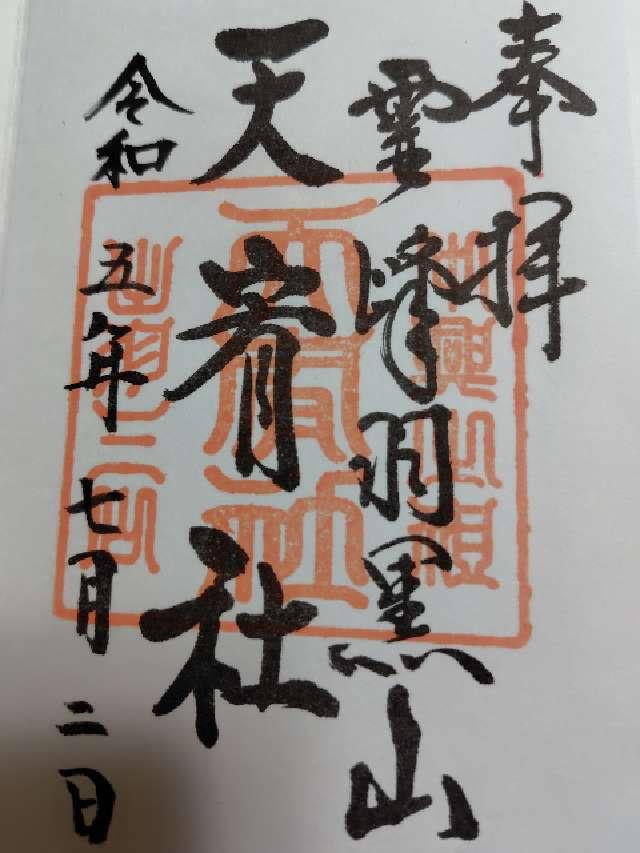 奉拝
霊峰羽黒山
天宥社
令和五年七月二日